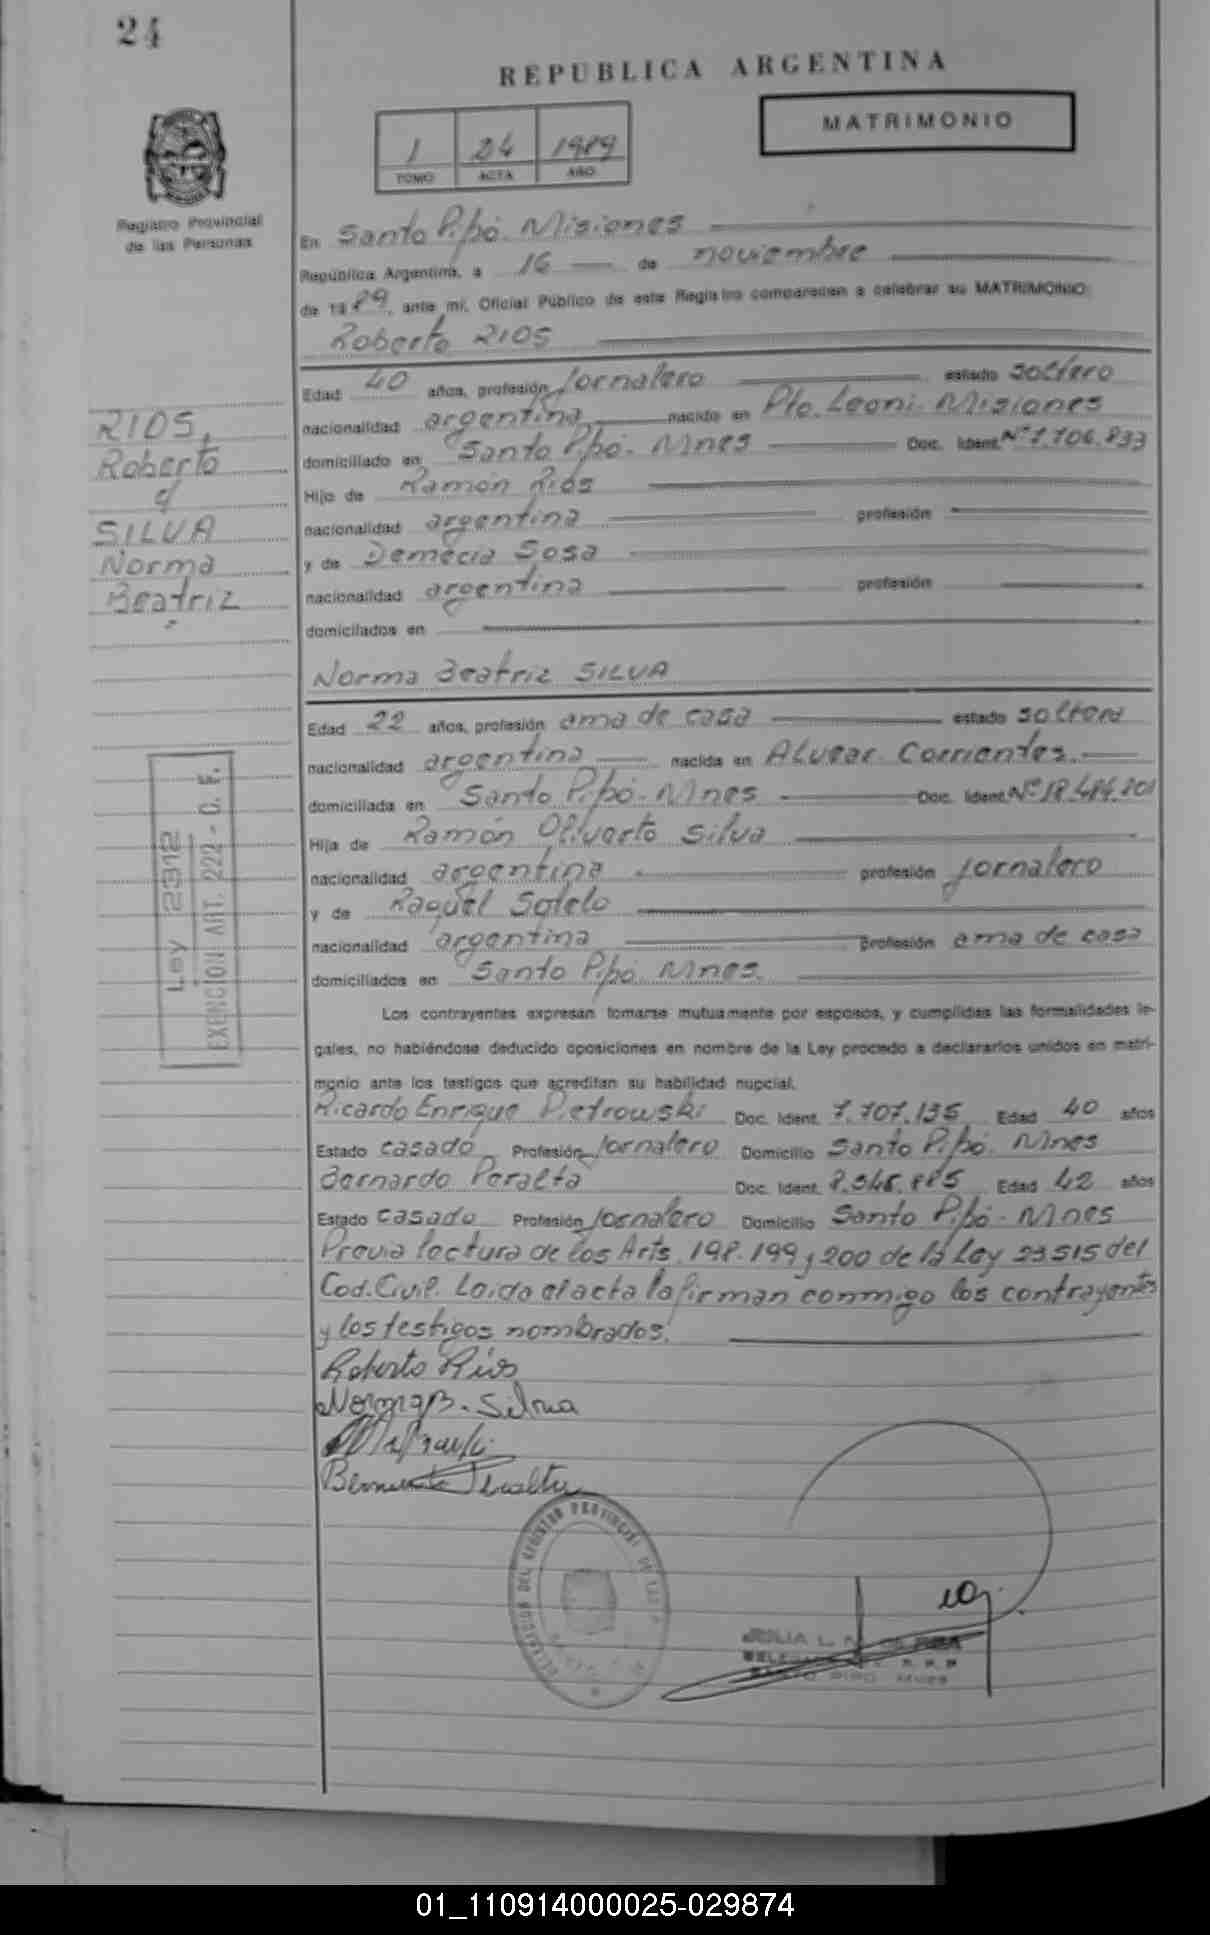 24
REPUBLICA ARGENTINA
MATRIMONIO
1 24 1989
TOMO ACTA AÑO
Registro Provincial
de las Personas
En Santo Pipó. Misiones
República Argentina, a 16 de noviembre
de 1989, ante mí, Oficial Público de este Registro comparecen a celebrar su MATRIMONIO:
Roberto RIOS
Edad 40 años, profesión Jornalero estado soltero
nacionalidad argentina nacido en Pto. Leoni. Misiones
domiciliado en Santo Pipó. Mnes Doc. Ident. Nº 7.706.833
Hijo de Ramón Ríos
nacionalidad argentina profesión
y de Demecia Sosa
nacionalidad argentina profesión
domiciliados en
RIOS,
Roberto
c/
SILVA
Norma
Beatriz
Norma Beatriz SILVA
Edad 22 años, profesión ama de casa estado soltera
nacionalidad argentina nacida en Alvear. Corrientes.
domiciliada en Santo Pipó. Mnes Doc. Ident. Nº
Hija de Ramón Oliverto Silva
nacionalidad argentina profesión Jornalero
y de Raquel Sotelo
nacionalidad argentina profesión ama de casa
domiciliados en Santo Pipó. Mnes.
Ley 2312
EXENCION ART. 222 - C. F.
Los contrayentes expresan tomarse mutuamente por esposos, y cumplidas las formalidades le-
gales, no habiéndose deducido oposiciones en nombre de la Ley procedo a declararlos unidos en matri-
monio ante los testigos que acreditan su habilidad nupcial.
Ricardo Enrique Pietrowski Doc. Ident. 7.707.135 Edad 40 años
Estado casado Profesión Jornalero Domicilio Santo Pipó. Mnes
Bernardo Peralta Doc. Ident. 8.545.885 Edad 42 años
Estado casado Profesión Jornalero Domicilio Santo Pipó - Mnes
Previa lectura de los Arts. 198. 199 y 200 de la Ley 23515 del
Cod. Civil. Leida el acta la firman conmigo los contrayentes
y los testigos nombrados.
Roberto Ríos
Norma B. Silva
Bernardo Peralta
DELEGACION DEL REGISTRO PROVINCIAL DE LAS
JULIA L.
SANTO PIPO MNES
01_110914000025-029874